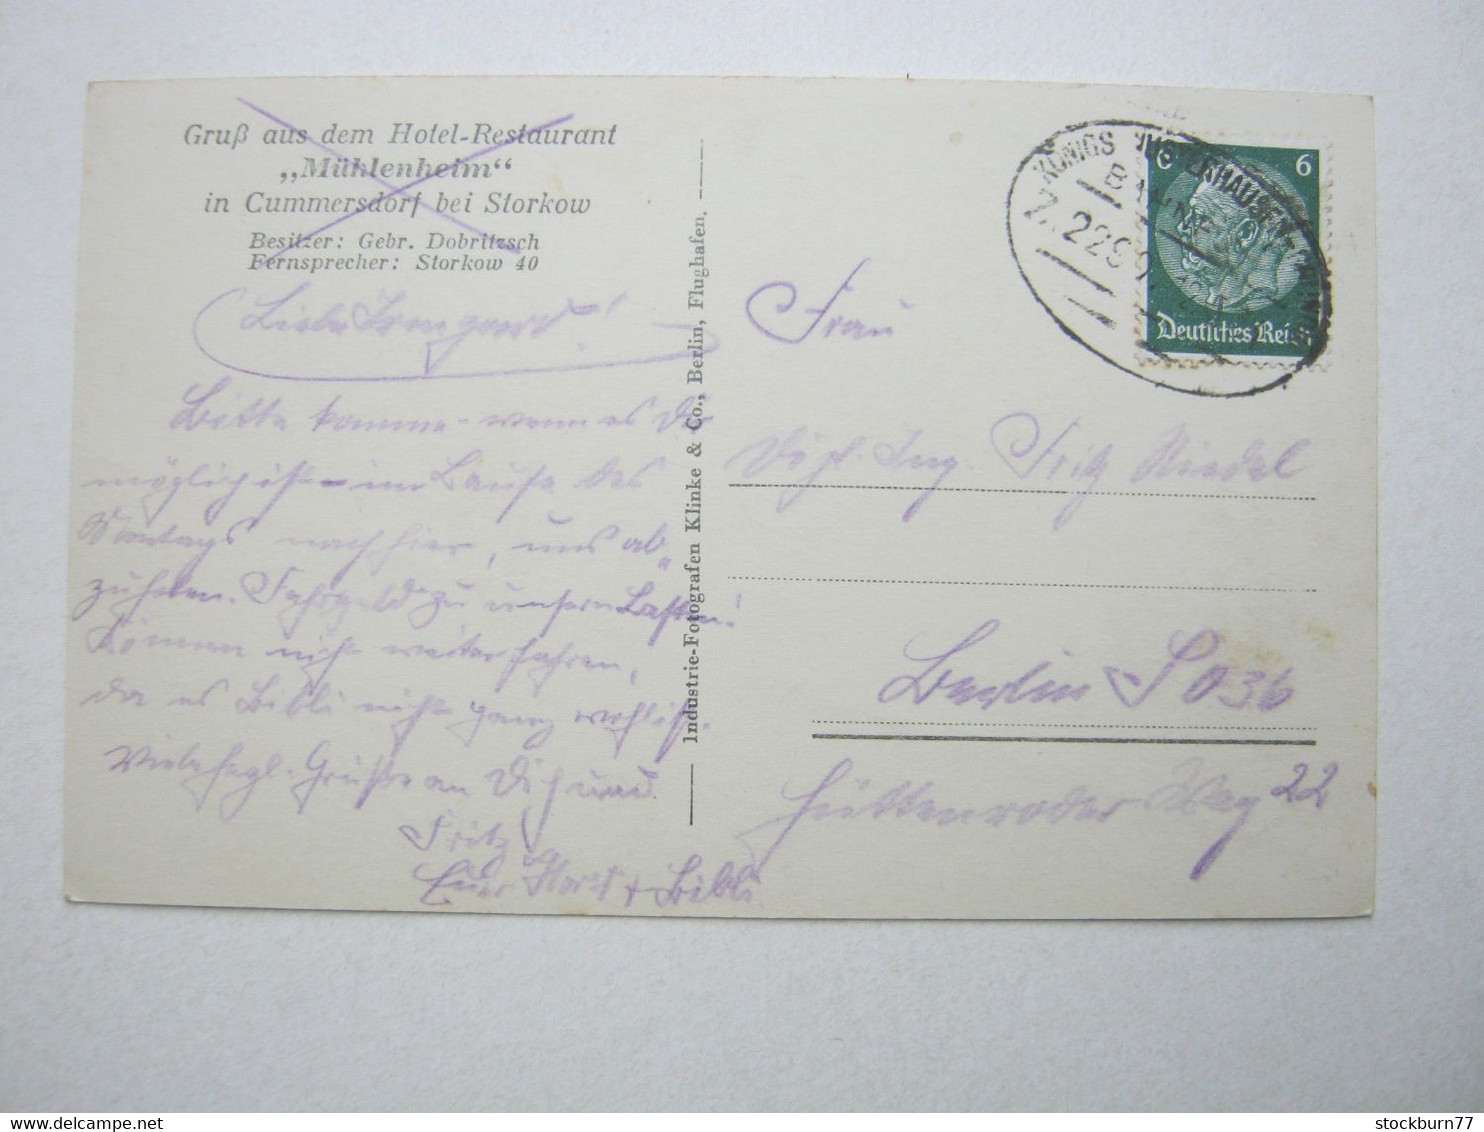 Gruß aus dem Hotel-Restaurant
„Mühlenheim“
in Cummersdorf bei Storkow
Besitzer: Gebr. Dobritzsch
Fernsprecher: Storkow 40
Liebe Irmgard!
Bitte komme - wenn es Dir
möglich ist - im Laufe des
Montags nach hier, uns ab-
zuholen. Fahrgeld zu unsern Lasten!
Können nicht weiterfahren,
da es Bibli nicht ganz wohl ist.
Viele herzl. Grüße an Dich und
Fritz
Euer Horst + Bibli
Industrie-Fotografen Klinke & Co., Berlin, Flughafen.
Frau
Dipl. Ing. Fritz Riedel
Berlin SO36
Hüttenroder Weg 22
KÖNIGS WUSTERHAUSEN
BAHNPOST
6
Deutsches Reich
stockburn77